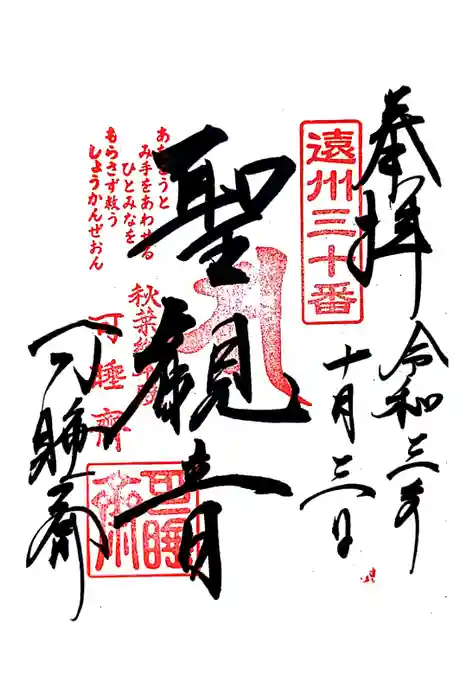 奉拝
令和三年
十月三日
遠州三十番
聖観音
あなとうと
み手をあわせる
ひとみなを
もらさず救う
しょうかんぜおん
可睡斎
可睡齊